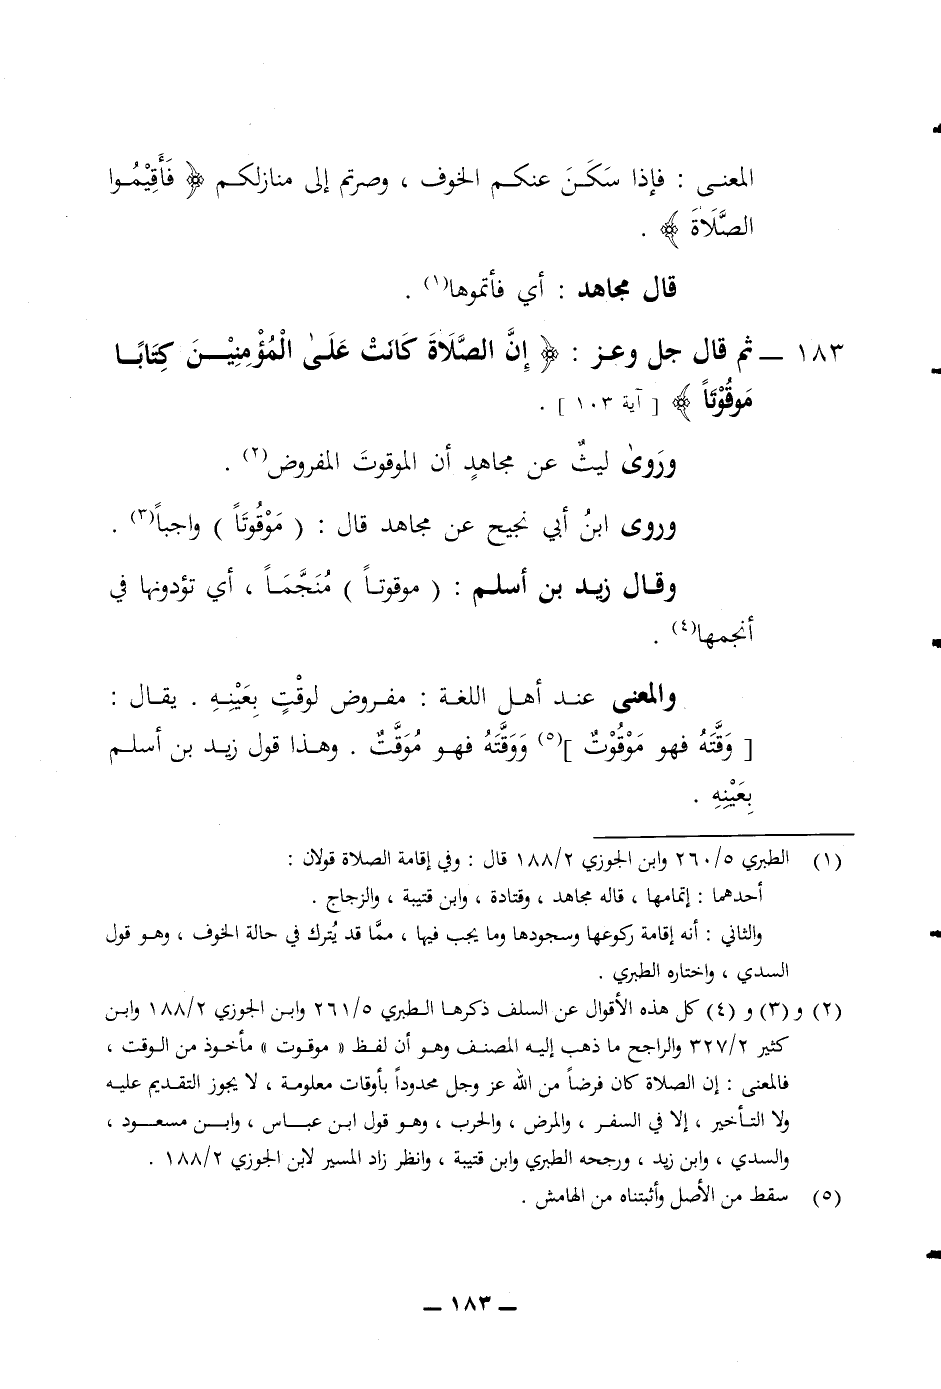 المعنى : فإذا سَكَنَ عنكم الخوف ، وصرتم إلى منازلكم ﴿ فَأَقِيْمُوا
الصَّلَاةَ ﴾ .
قال مجاهد : أي فأتموها(١) .
١٨٣ ـ ثم قال جل وعز : ﴿ إِنَّ الصَّلَاةَ كَانَتْ عَلَىٰ الْمُؤْمِنِيْنَ كِتَابًا
مَوقُوْتَاً ﴾ [ آية ١٠٣ ] .
ورَوىٰ ليثٌ عن مجاهدٍ أن الموقوتَ المفروض(٢) .
وروى ابنُ أبي نجيح عن مجاهد قال : ( مَوْقُوتَاً ) واجباً(٣) .
وقال زيد بن أسلم : ( موقوتاً ) مُنَجَّمَاً ، أي تؤدونها في
أنجمها(٤) .
والمعنى عند أهل اللغة : مفروض لوقْتٍ بِعَيْنِهِ . يقال :
[ وَقَّتَهُ فهو مَوْقُوْتٌ ](٥) وَوَقَّتَهُ فهو مُوَقَّتٌ . وهذا قول زيد بن أسلم
بِعَيْنِهِ .
(١) الطبري ٢٦٠/٥ وابن الجوزي ١٨٨/٢ قال : وفي إقامة الصلاة قولان :
أحدهما : إتمامها ، قاله مجاهد ، وقتادة ، وابن قتيبة ، والزجاج .
والثاني : أنه إقامة ركوعها وسجودها وما يجب فيها ، ممَّا قد يُترك في حالة الخوف ، وهو قول
السدي ، واختاره الطبري .
(٢) و (٣) و (٤) كل هذه الأقوال عن السلف ذكرها الطبري ٢٦١/٥ وابن الجوزي ١٨٨/٢ وابن
كثير ٣٢٧/٢ والراجح ما ذهب إليه المصنف وهو أن لفظ « موقوت » مأخوذ من الوقت ،
فالمعنى : إن الصلاة كان فرضاً من الله عز وجل محدوداً بأوقات معلومة ، لا يجوز التقديم عليه
ولا التأخير ، إلا في السفر ، والمرض ، والحرب ، وهو قول ابن عباس ، وابن مسعود ،
والسدي ، وابن زيد ، ورجحه الطبري وابن قتيبة ، وانظر زاد المسير لابن الجوزي ١٨٨/٢ .
(٥) سقط من الأصل وأثبتناه من الهامش .
ـ ١٨٣ ـ